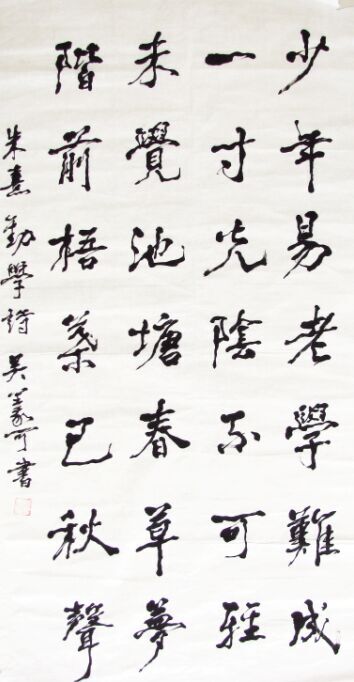 少年易老學難成
一寸光陰不可輕
未覺池塘春草夢
階前梧葉已秋聲
朱熹勸學詩 吴可書